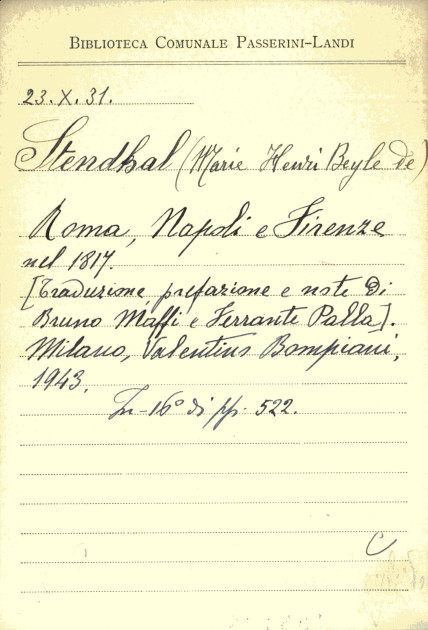 BIBLIOTECA COMUNALE PASSERINI-LANDI
23.X.31.
Stendhal (Marie Henri Beyle de)
Roma, Napoli e Firenze
nel 1817.
[Traduzione, prefazione e note di
Bruno Maffi e Ferrante Palla].
Milano, Valentino Bompiani,
1943.
In-16° di pp. 522.
C